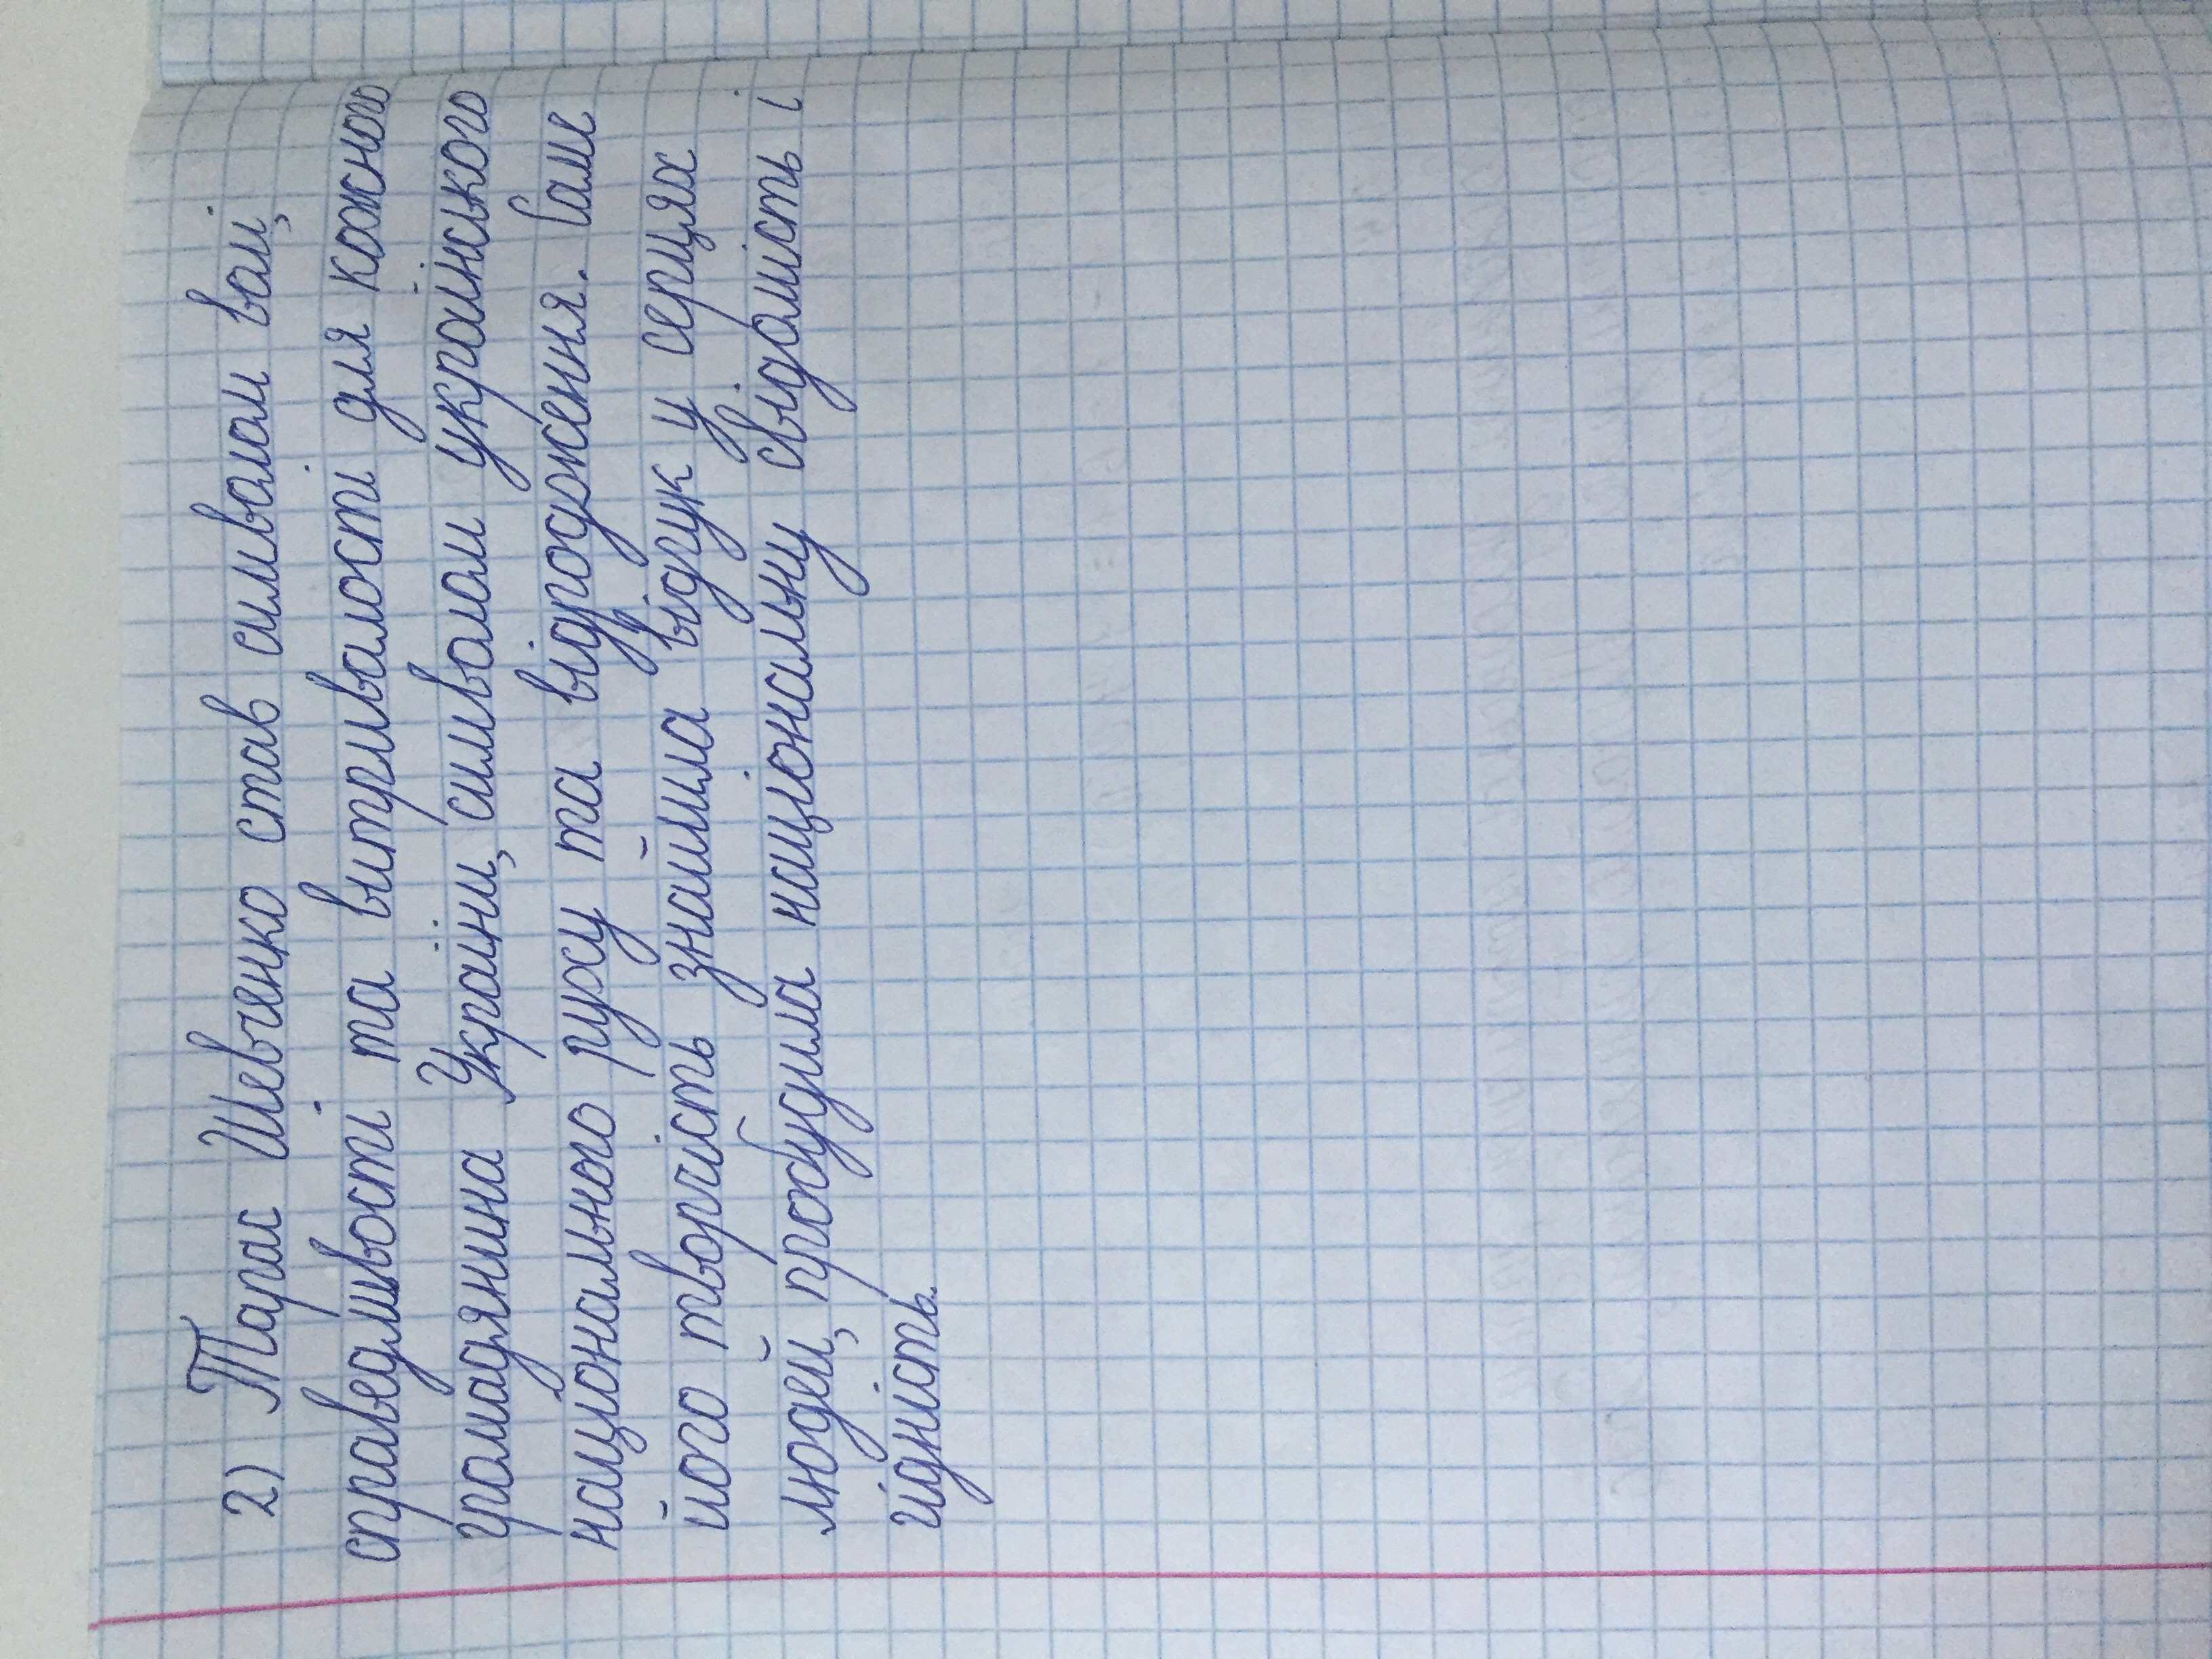 2) Тарас Шевченко став символом волі,
справедливості та витривалості для кожного
громадянина України, символом українського
національного руху та відродження. Саме
його творчість знайшла відгук у серцях
людей, пробудила національну свідомість і
гідність.